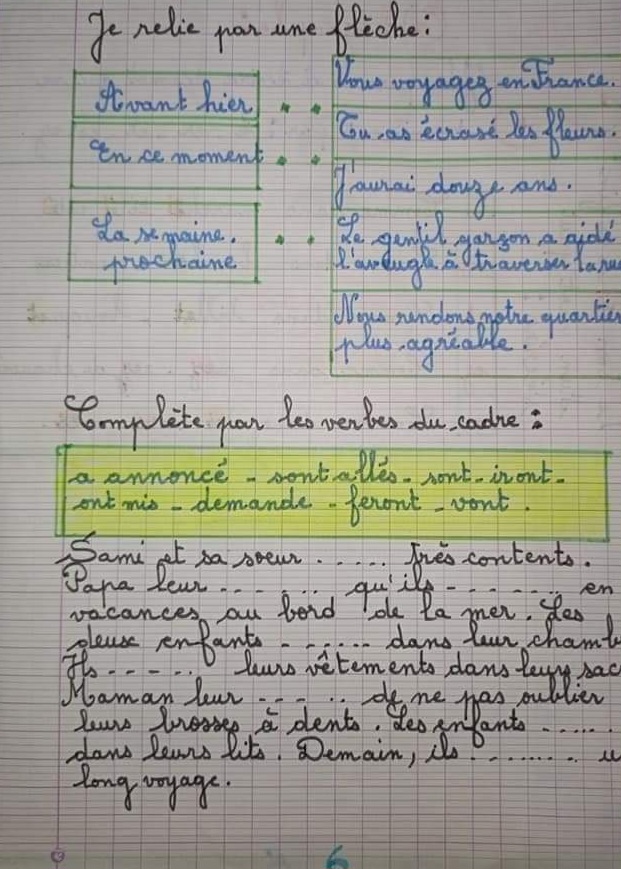 Je relie par une flèche :
Avant hier
En ce moment
La semaine.
prochaine
Vous voyagez en France.
Tu as écrasé les fleurs.
J'aurai douze ans.
Le gentil garçon a aidé
l'aveugle à traverser la rue
Nous rendons notre quartier
plus agréable.
Complète par les verbes du cadre :
a annoncé - sont allés - sont - iront -
ont mis - demande - feront - vont.
Sami et sa soeur ...... très contents.
Papa leur ....... qu'ils ....... en
vacances au bord de la mer. Les
deux enfants ....... dans leur chamb
Ils ...... leurs vêtements dans leurs sac
Maman leur ...... de ne pas oublier
leurs brosses à dents. Les enfants ......
dans leurs lits. Demain, ils ........ u
long voyage.
6